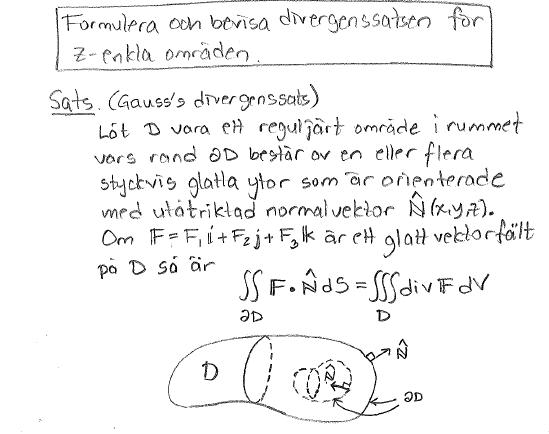 Formulera och bevisa divergenssatsen för
z-enkla områden.
Sats. (Gauss's divergenssats)
Låt D vara ett reguljärt område i rummet
vars rand ∂D består av en eller flera
styckvis glatta ytor som är orienterade
med utåtriktad normalvektor N̂(x,y,z).
Om 𝔽=F₁𝕚+F₂𝕛+F₃𝕜 är ett glatt vektorfält
på D så är
∬ 𝔽•N̂dS=∭div𝔽dV
∂D D
N̂
D N̂
∂D